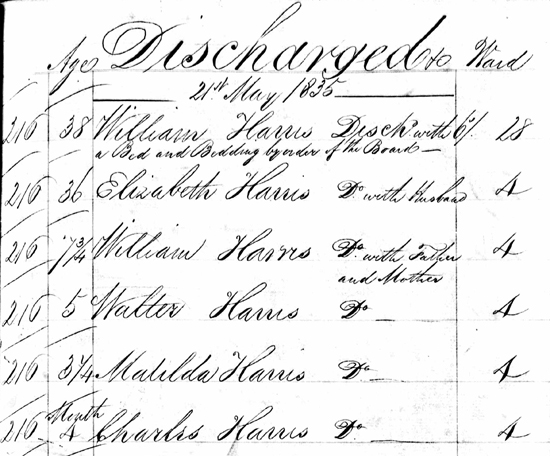 Age Discharged &c Ward
21st May 1835
216 38 William Harris Disch. with 6/ 28
a Bed and Bedding by order of the Board
216 36 Elizabeth Harris Do. with Husband 4
216 7 3/4 William Harris Do. with Father 4
and Mother
216 5 Walter Harris Do. 4
216 3 1/4 Matilda Harris Do. 4
Month
216 4 Charles Harris Do. 4